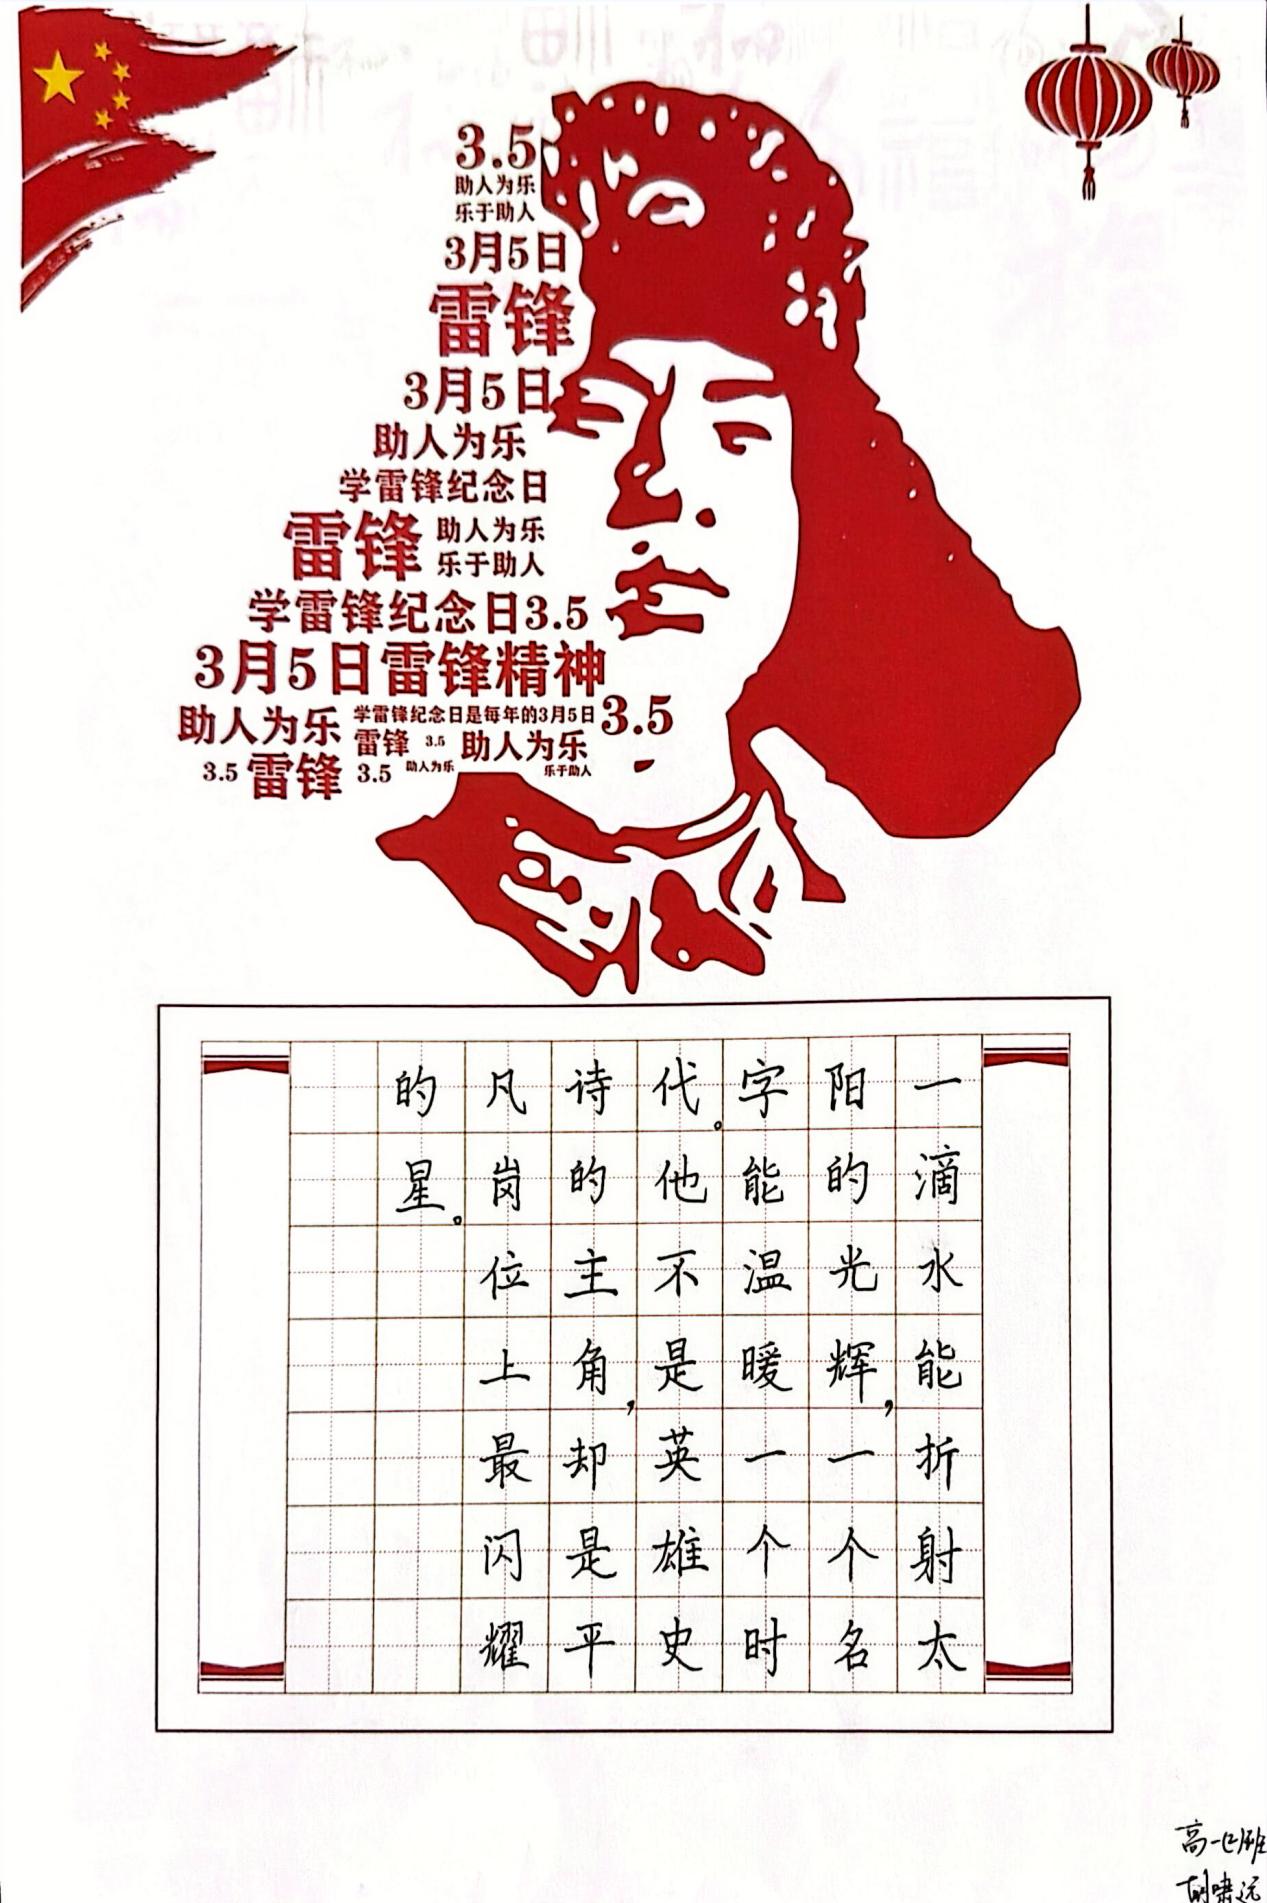 3.5
助人为乐
乐于助人
3月5日
雷锋
3月5日
助人为乐
学雷锋纪念日
雷锋 助人为乐
乐于助人
学雷锋纪念日3.5
3月5日雷锋精神
助人为乐 学雷锋纪念日是每年的3月5日 3.5
雷锋 3.5 助人为乐
3.5 雷锋 3.5 助人为乐 乐于助人
一滴水能折射太
阳的光辉，一个名
字能温暖一个时
代。他不是英雄史
诗的主角，却是平
凡岗位上最闪耀
的星。
高一班
胡啸远